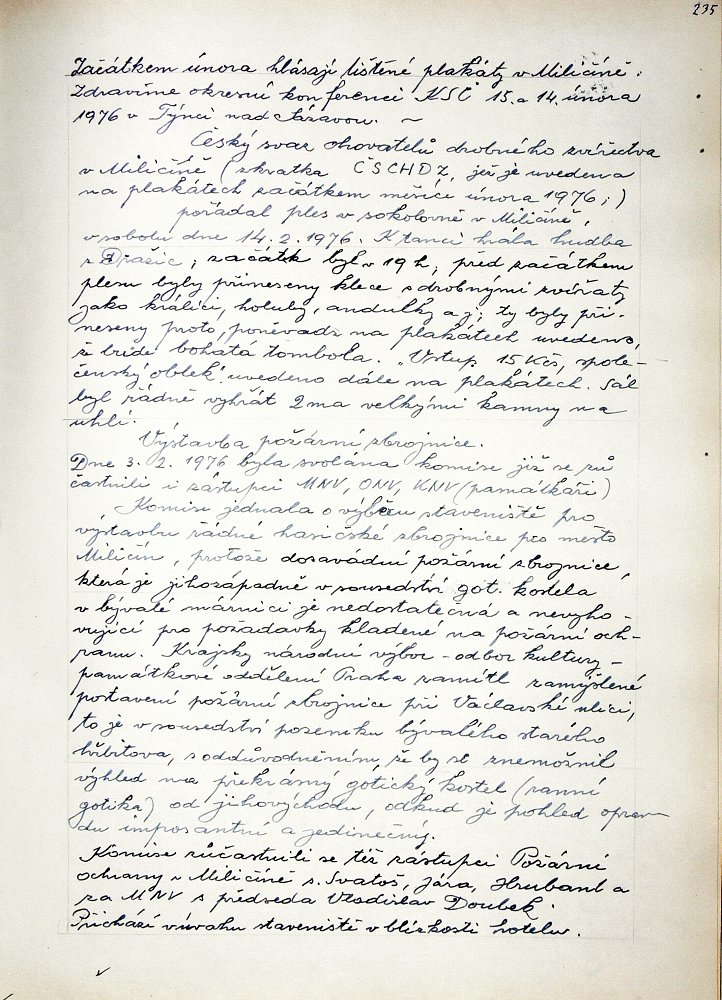 235
Začátkem února hlásají tištěné plakáty v Miličíně:
Zdravíme okresní konferenci KSČ 15. a 14. února
1976 v Týnci nad Sázavou. ~
Český svaz chovatelů drobného zvířectva
v Miličíně (zkratka ČSCHDZ, jež je uvedena
na plakátech začátkem měsíce února 1976;)
pořádal ples v sokolovně v Miličíně,
v sobotu dne 14. 2. 1976. K tanci hrála hudba
z Dražic; začátk byl v 19 h; před začátkem
plesu byly přineseny klece s drobnými zvířaty
jako králíci, holuby, andulky a j; ty byly při-
neseny proto, poněvadž na plakátech uvedeno,
že bude bohatá tombola. „Vstup 15 Kčs, spole-
čenský oblek" uvedeno dále na plakátech. Sál
byl řádně vyhřát 2ma velkými kamny na
uhlí.
Výstavba požární zbrojnice.
Dne 3. 2. 1976 byla svolána komise již se zů
častnili i zástupci MNV, ONV, KNV (památkáři)
Komise jednala o výběru staveniště pro
výstavbu řádné hasičské zbrojnice pro město
Miličín, protože dosavádní požární zbrojnice,
která je jihozápadně v sousedství got. kostela
v bývalé márnici je nedostatečná a nevyho-
vující pro požadavky kladené na požární och-
ranu. Krajský národní výbor - odbor kultury -
památkové oddělení Praha zamítl zamýšlené
postavení požární zbrojnice při Václavské ulici,
to je v sousedství pozemku bývalého starého
hřbitova, s oddůvodněním, že by se znemožnil
výhled na překrásný gotický kostel (ranní
gotika) od jihovýchodu, odkud je pohled oprav-
du imposantní a jedinečný.
Komise zúčastnili se též zástupci Požární
ochrany v Miličíně s. Svatoš, Jára, Hrubant a
za MNV s předseda Vladislav Doubek.
Přichází v úvahu staveniště v blízkosti hotelu.